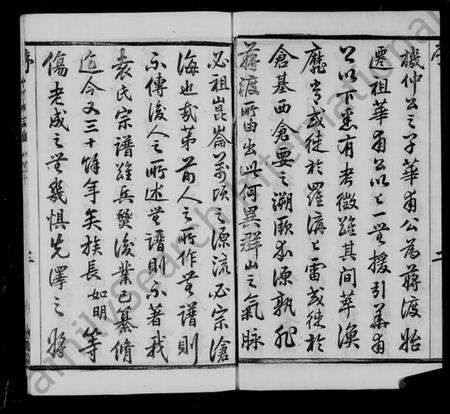 機仲公之子華甫公為蔣渡始
遷祖華甫公以上一世援引華甫
公以下悉有考徵雖其間萃渙
靡常或徙於羅溝上雷或徙於
倉基西倉要之溯厥本源孰非
蔣渡所由出此何異群山之氣脉
必祖崑崙萬頃之源流必宗滄
海也哉第前人之所作無譜則
不傳後人之所述無譜則不著我
袁氏宗譜雖兵燹後業已纂脩
迄今又三十餘年矣族長如明等
傷老成之無幾懼先澤之將
序